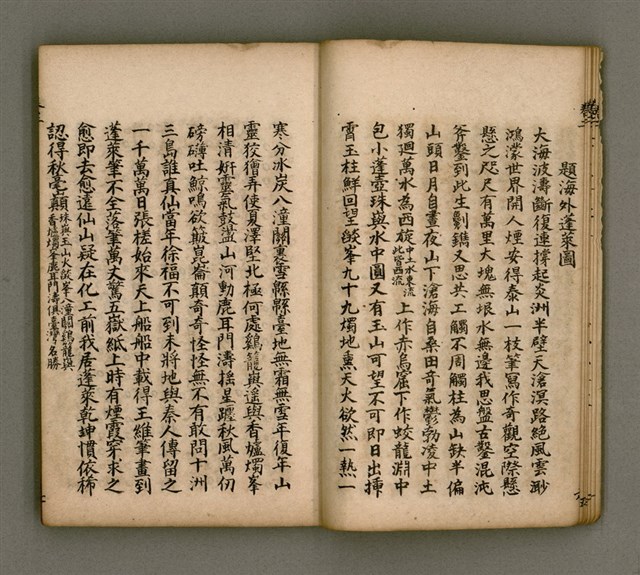 題海外蓬萊圖
大海波濤斷復連撐起炎洲半壁天滄溟路絕風雲渺
鴻濛世界開人煙安得泰山一枝筆寫作奇觀空際懸
懸之咫尺有萬里大塊無垠水無邊我思盤古鑿混沌
斧鑿到此生剜鐫又思共工觸不周觸柱為山缺半偏
山頭日月自晝夜山下滄海自桑田奇氣鬱勃凌中土
獨迴萬水為西旋中土水東流此皆西流上作赤烏窟下作蛟龍淵中
包小蓬壺珠與水中圓又有玉山可望不可即日出挿
霄玉柱鮮回望燄峯九十九燭地熏天火欲然一熱一
寒分冰炭八潼關裏雪縣縣臺地無霜無雪年復年山
靈狡獪弄使夏澤堅北極何處鷄籠與遥與香爐燭峯
相清妍靈氣鼓盪山河動鹿耳門濤搖呈躔秋風萬仞
磅礴吐鯨鳴欲簸崑崙顛奇奇怪怪無不有敢問十洲
三島誰真仙當年徐福不可到未將地與秦人傳留之
一千萬萬日張槎始來天上船船中載得王維筆畫到
蓬萊筆不全落筆萬丈驚五嶽紙上時有煙霞穿求之
愈即去愈遠仙山疑在化工前我居蓬萊乾坤慣依稀
認得秋毫顛珠與玉山火燄峯八潼關鷄籠與香爐燭峯鹿耳門濤俱臺灣名勝